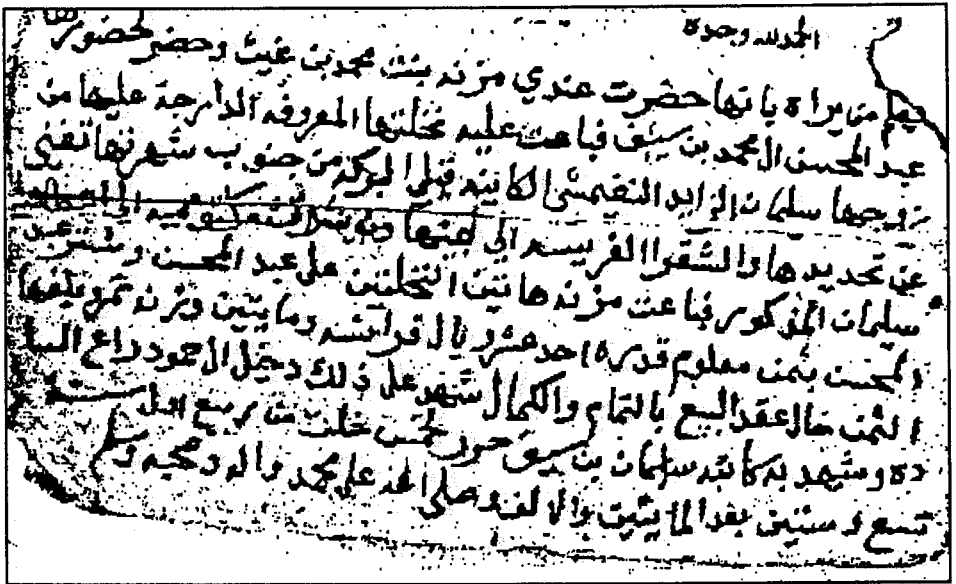 الحمد لله وحده
فيها من يراه بانها حضرت عندي مزنه بنت محمد بن غيث وحضر لحضورها
عبد المحسن ال محمد بن سيف فباعت عليه نخلتها المعروفه الدارجة عليها من
زوجها سليمان الزايد النقيمشي الكاينه قبلي البركه من جنوب شهرتها تغني
عن تحديدها والشقرا الغريسه الي
سليمان المذكور فباعت مزنه هاتين النخلتين على عبد المحسن وشترا عبد
المحسن بثمن معلوم قدره احد عشر ريال فرانسه ومايتين وزنه تمر وبلغها
الثمن حال عقد البيع بالتمام والكمال شهد على ذلك دخيل ال حمود راع البيا
ده وشهد به كاتبه سليمان بن سيف حرر لخمس خلت من ربيع اول سنة
تسع وستين بعد المايتين والالف وصلى الله على محمد واله وصحبه وسلم